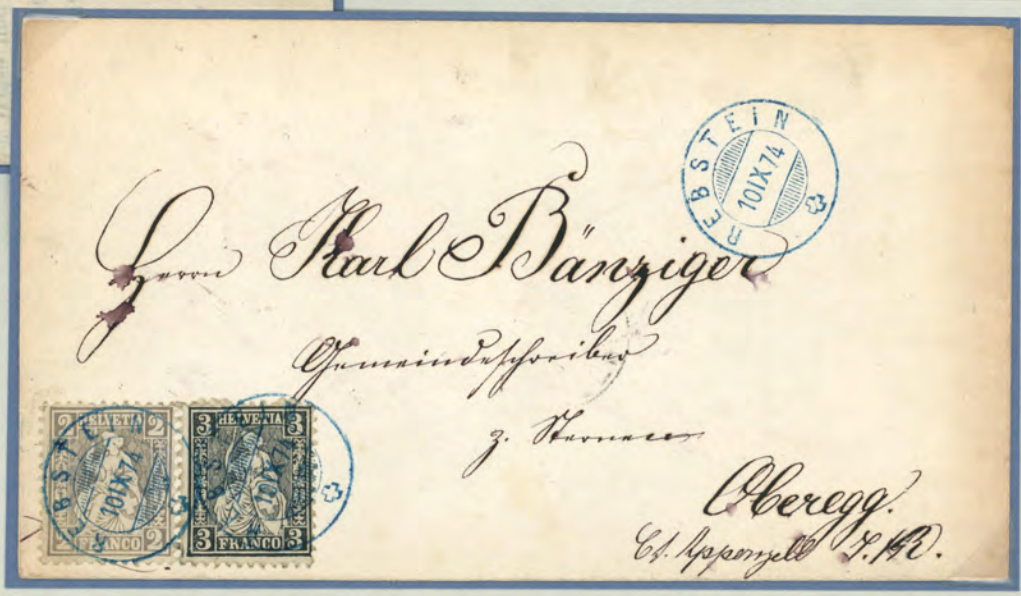 REBSTEIN
10 IX 74
Herrn Karl Bänziger
Gemeindeschreiber
z. Sternen
Oberegg.
Ct. Appenzell I. Rh.
2 HELVETIA 2
2 FRANCO 2
REBSTEIN
10 IX 74
3 HELVETIA 3
3 FRANCO 3
REBSTEIN
10 IX 74